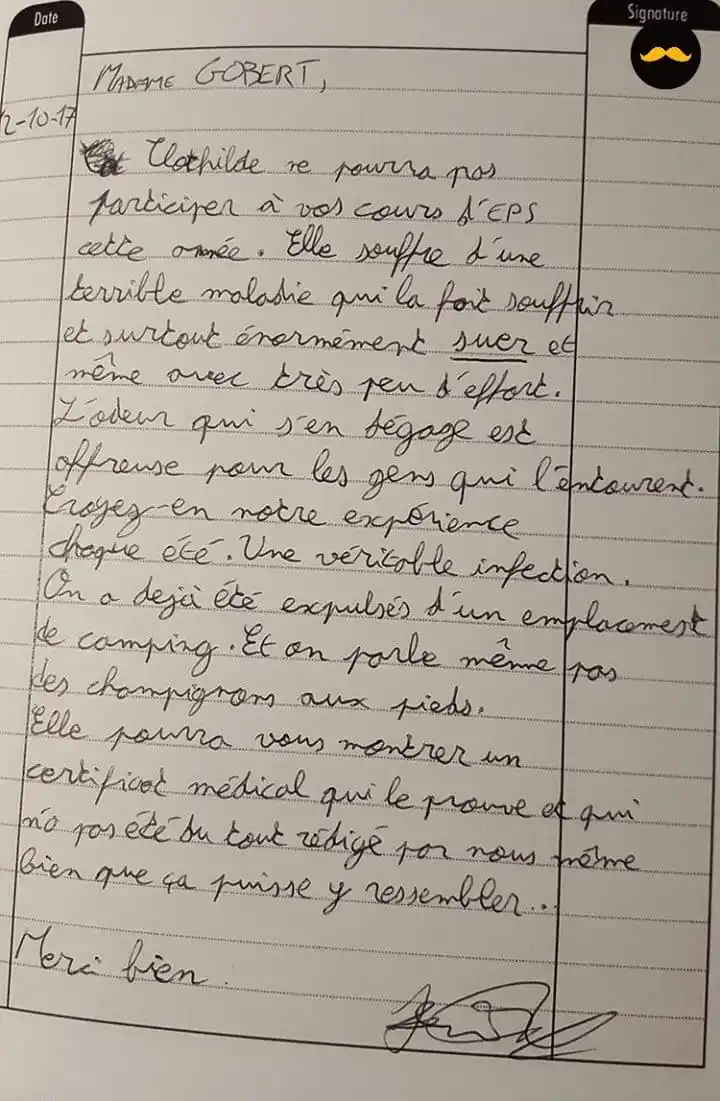 Date
Signature
MADAME GOBERT,
2-10-17
Clothilde ne pourra pas
participer à vos cours d'EPS
cette année. Elle souffre d'une
terrible maladie qui la fait souffrir
et surtout énormément suer et
même avec très peu d'effort.
L'odeur qui s'en dégage est
affreuse pour les gens qui l'entourent.
Croyez-en notre expérience
chaque été. Une véritable infection.
On a dejà été expulsés d'un emplacement
de camping. Et on parle même pas
des champignons aux pieds.
Elle pourra vous montrer un
certificat médical qui le prouve et qui
n'a pas été du tout rédigé par nous même
bien que ça puisse y ressembler...
Merci bien.